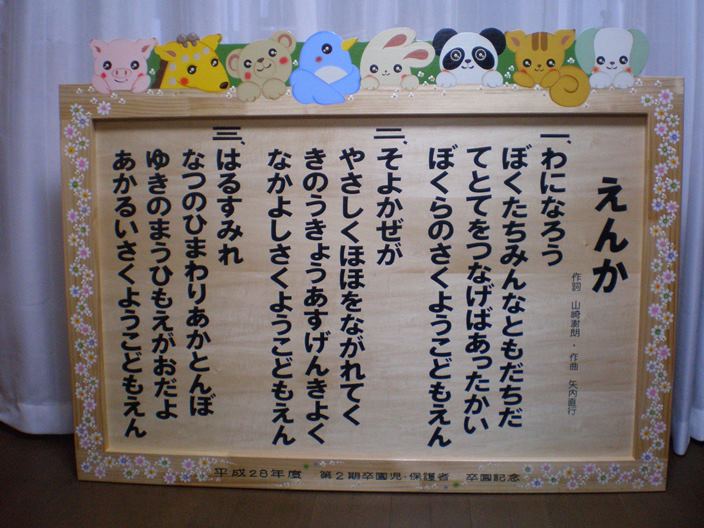 えんか
作詞 山崎澍朗・作曲 矢内直行
一、わになろう
ぼくたちみんなともだちだ
てとてをつなげばあったかい
ぼくらのさくようこどもえん
二、そよかぜが
やさしくほほをながれてく
きのうきょうあすげんきよく
なかよしさくようこどもえん
三、はるすみれ
なつのひまわりあかとんぼ
ゆきのまうひもえがおだよ
あかるいさくようこどもえん
平成28年度 第2期卒園児・保護者 卒園記念